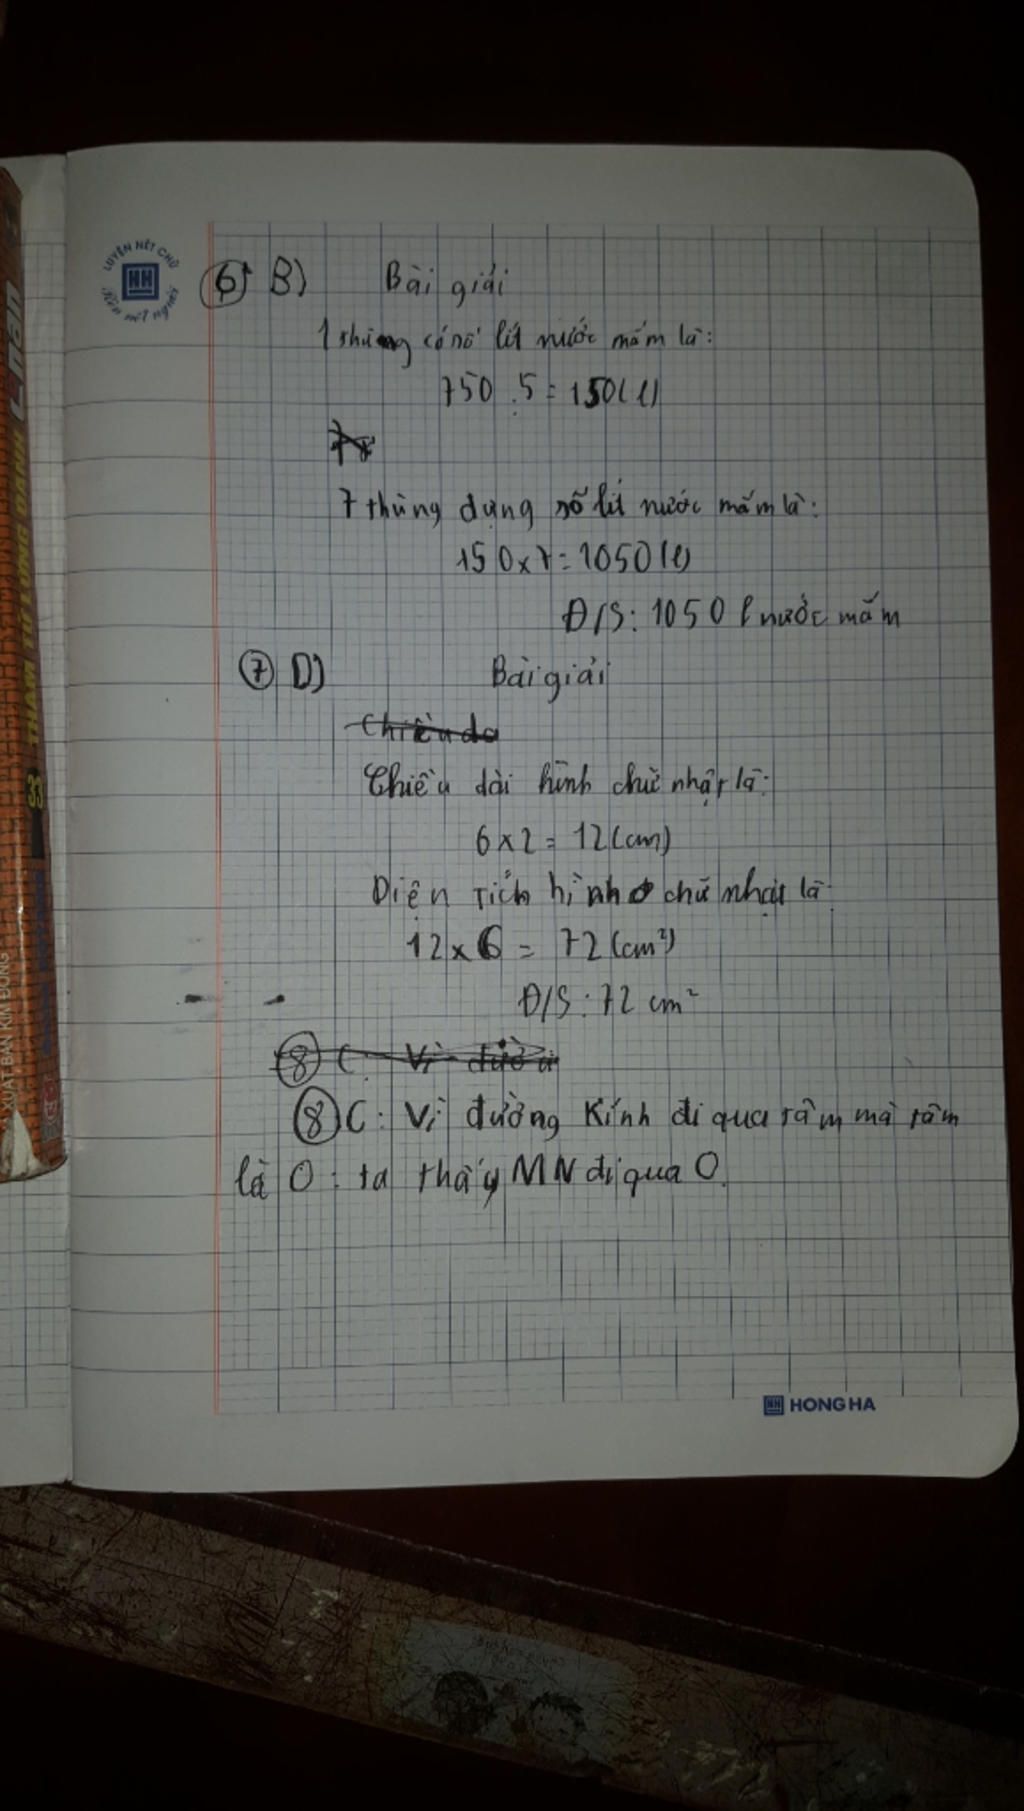 LUYỆN NÉT CHỮ
HH
Rèn nết người
6 B) Bài giải
1 thùng có số lít nước mắm là:
750 : 5 = 150 (l)
7 thùng đựng số lít nước mắm là:
150 x 7 = 1050 (l)
Đ/S: 1050 l nước mắm
7 D) Bài giải
Chiều dà
Chiều dài hình chữ nhật là:
6 x 2 = 12 (cm)
Diện tích hình chữ nhật là
12 x 6 = 72 (cm²)
Đ/S: 72 cm²
8 C: Vì đườn
8 C: Vì đường Kính đi qua tâm mà tâm
là O: ta thấy MN đi qua O.
HH HONG HA
THÁM TỬ LỪNG DANH
33
XUẤT BẢN KIM ĐỒNG